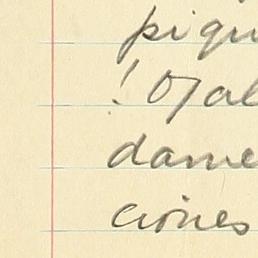 pigu
! Ojal
dame
ciones